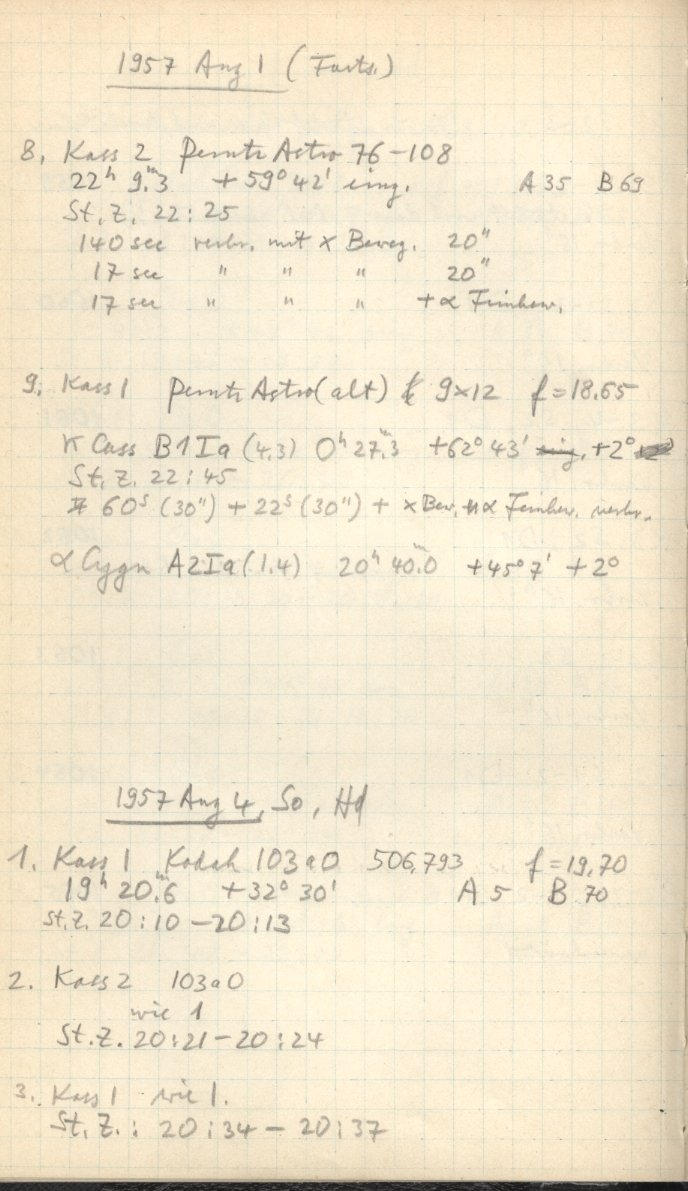 1957 Aug 1 (Forts.)
8, Kass 2 Perutz Astro 76-108
22ʰ 9.ᵐ3 +59° 42' eing. A 35 B 69
St. Z. 22:25
140 sec verbr. mit x Beweg. 20"
17 sec " " " 20"
17 sec " " " + α Feinbew.
9, Kass 1 Perutz Astro (alt) 9x12 f=18.65
κ Cass B1Ia (4.3) 0ʰ 27.ᵐ3 +62° 43' +2°
St. Z. 22:45
60ˢ (30") + 22ˢ (30") + x Bew. α Feinbew. verbr.
α Cygn A2Ia (1.4) 20ʰ 40.ᵐ0 +45° 7' +2°
1957 Aug 4, So, Hd
1. Kass 1 Kodak 103aO 506,793 f=19,70
19ʰ 20.ᵐ6 +32° 30' A 5 B 70
St. Z. 20:10 - 20:13
2. Kass 2 103aO
wie 1
St. Z. 20:21 - 20:24
3. Kass 1 wie 1.
St. Z.: 20:34 - 20:37